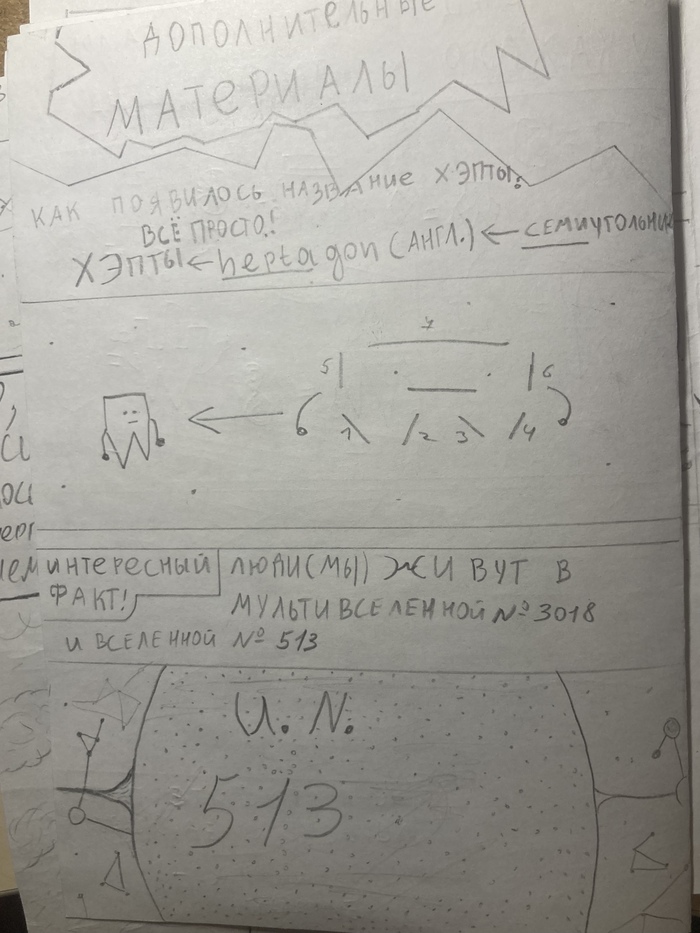 ДОПОЛНИТЕЛЬНЫЕ
МАТЕРИАЛЫ
КАК ПОЯВИЛОСЬ НАЗВАНИЕ ХЭПТЫ?
ВСЁ ПРОСТО!
ХЭПТЫ ← heptagon (АНГЛ.) ← СЕМИУГОЛЬНИК
7
5 6
1 2 3 4
ИНТЕРЕСНЫЙ
ФАКТ!
ЛЮДИ(МЫ) ЖИВУТ В
МУЛЬТИВСЕЛЕННОЙ № 3018
И ВСЕЛЕННОЙ № 513
U. N.
513